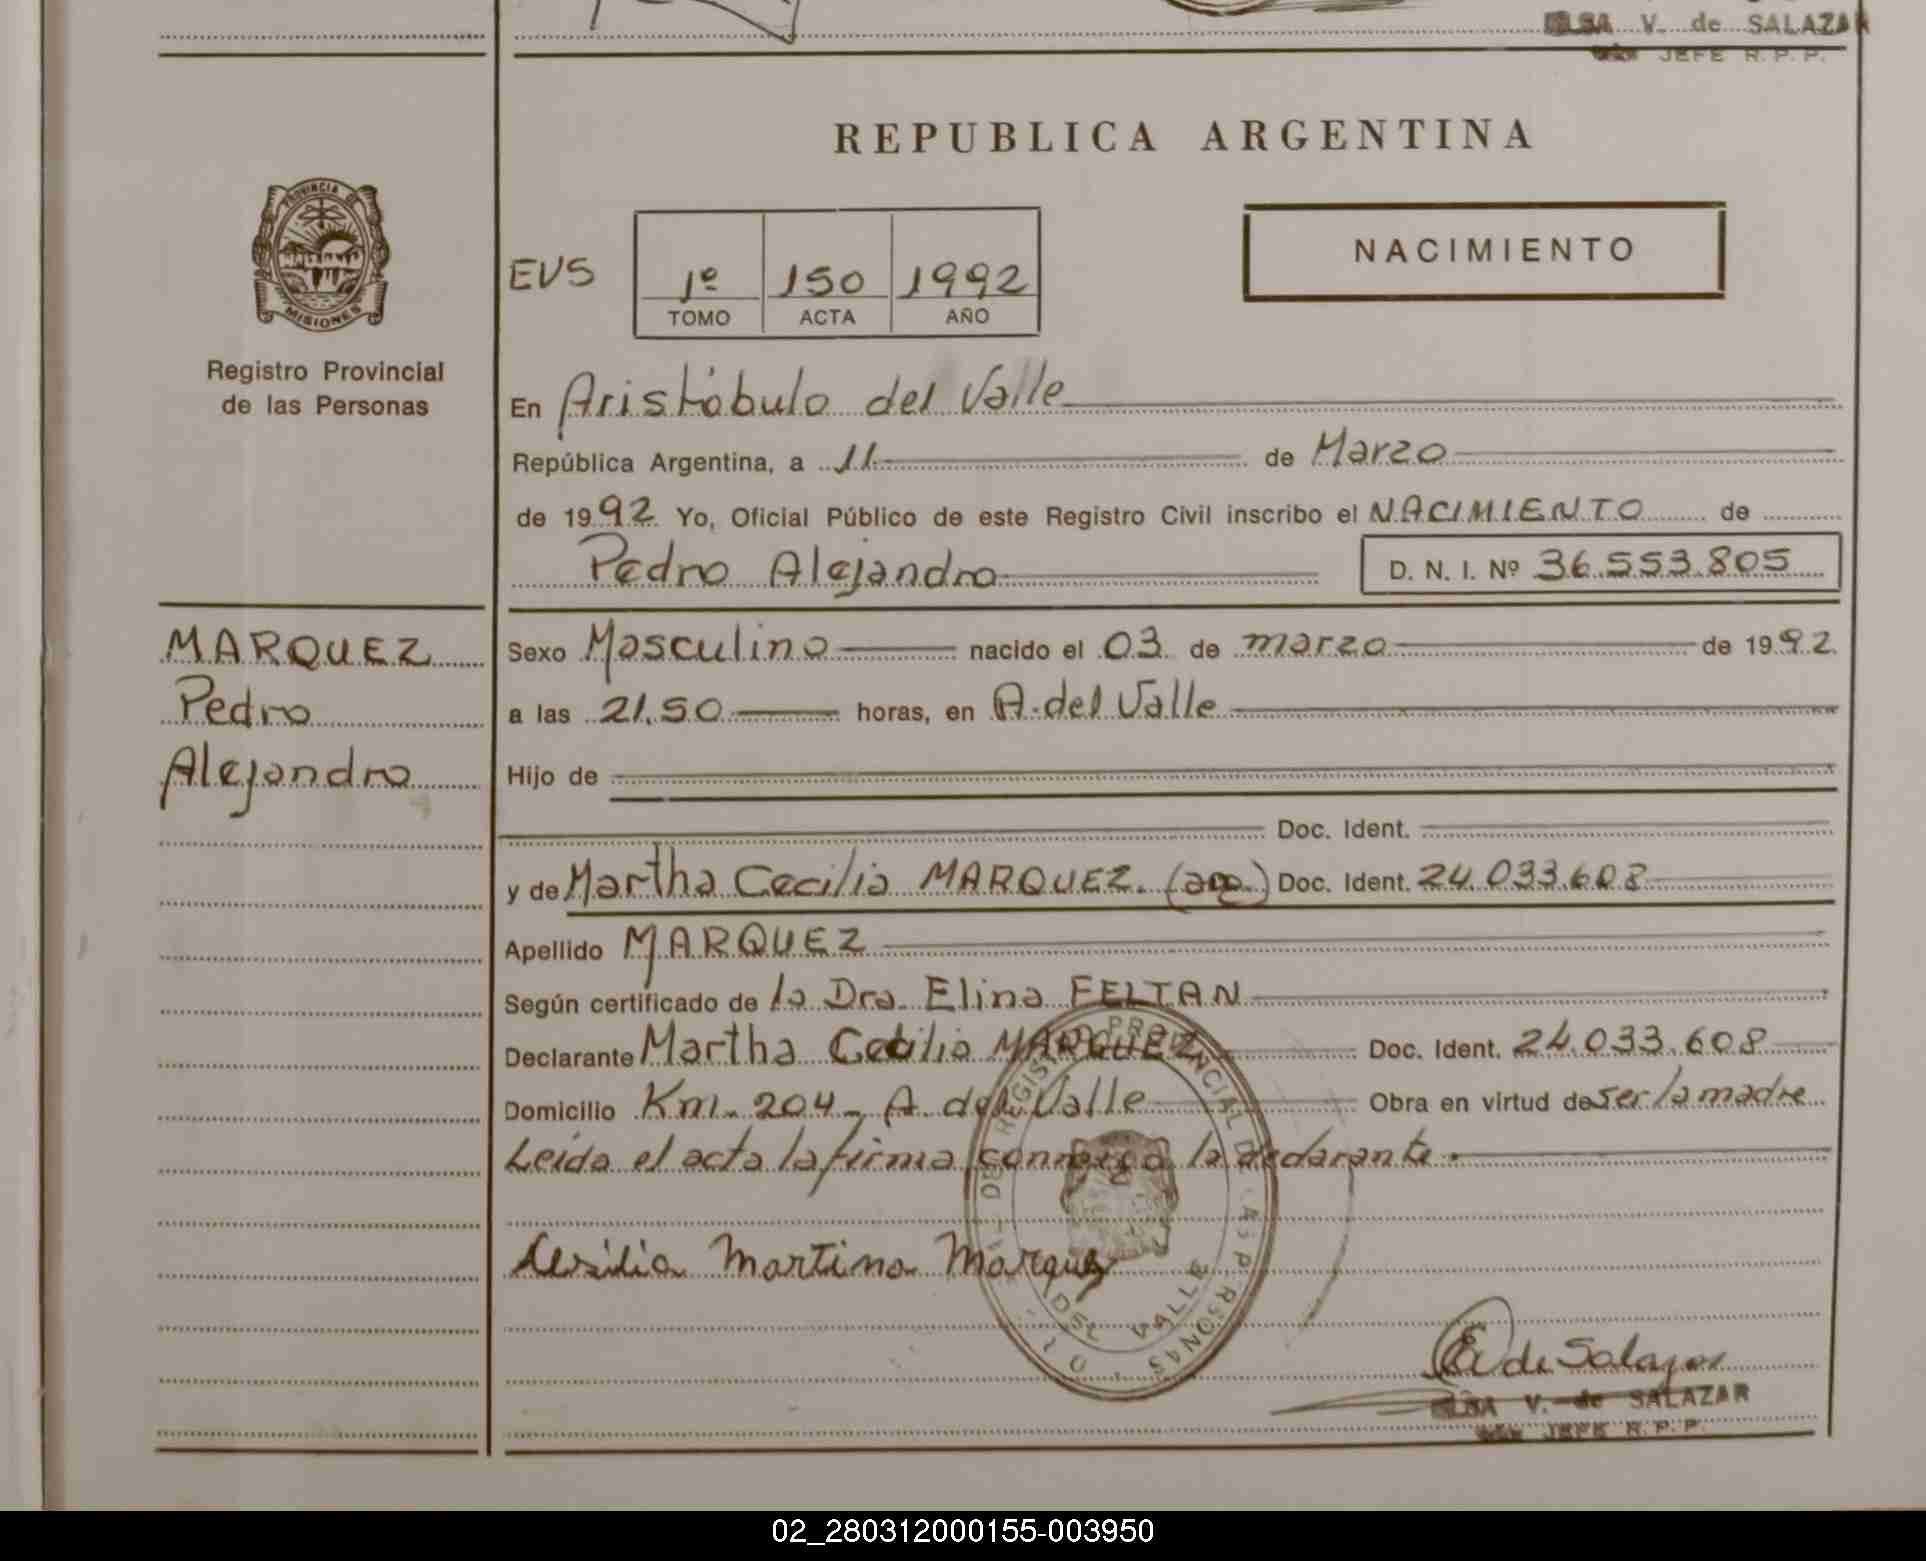 ELSA V. de SALAZAR
JEFE R. P. P.
REPUBLICA ARGENTINA
PROVINCIA DE
MISIONES
Registro Provincial
de las Personas
EVS
1º 150 1992
TOMO ACTA AÑO
NACIMIENTO
En Aristóbulo del Valle
República Argentina, a 11 de Marzo
de 1992 Yo, Oficial Público de este Registro Civil inscribo el NACIMIENTO de
Pedro Alejandro D. N. I. Nº 36.553.805
MARQUEZ
Pedro
Alejandro
Sexo Masculino nacido el 03 de marzo de 1992
a las 21.50 horas, en A. del Valle
Hijo de
Doc. Ident.
y de Martha Cecilia MARQUEZ. (arg.) Doc. Ident. 24.033.608
Apellido MARQUEZ
Según certificado de la Dra. Elina FELTAN
Declarante Martha Cecilia MARQUEZ Doc. Ident. 24.033.608
Domicilio Km. 204 - A. del Valle Obra en virtud de ser la madre
Leida el acta la firma conmigo la declarante.
Cesilia Martina Marquez
REGISTRO PROVINCIAL DE LAS PERSONAS
DEL VALLE
E V de Salazar
ELSA V. de SALAZAR
JEFE R. P. P.
02_280312000155-003950